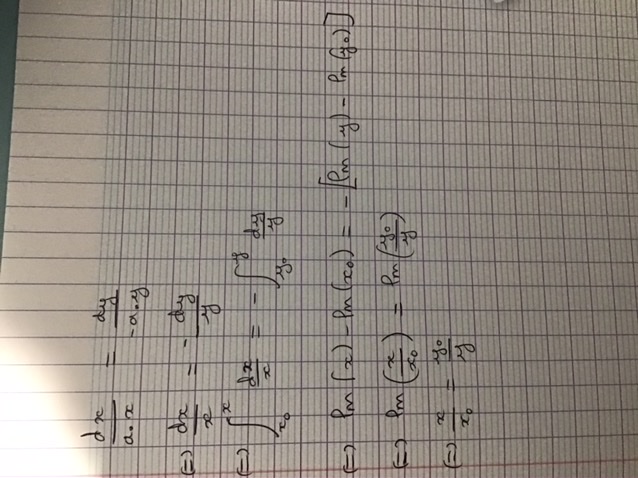 dx/(a₀x) = dy/(-a₀y)
(=) dx/x = - dy/y
(=) ∫_{x₀}^{x} dx/x = - ∫_{y₀}^{y} dy/y
(=) ln(x) - ln(x₀) = - [ln(y) - ln(y₀)]
(=) ln(x/x₀) = ln(y₀/y)
(=) x/x₀ = y₀/y